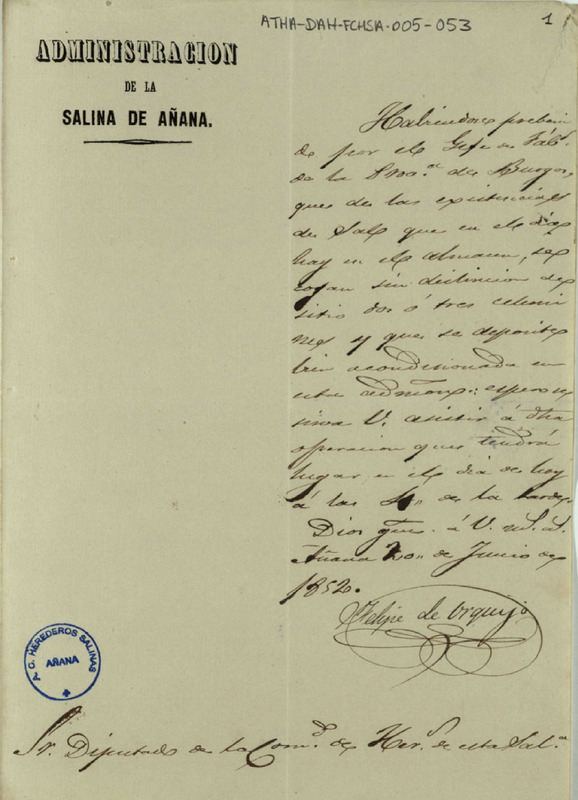 ATHA-DAH-FCHSA-005-053
1
ADMINISTRACION
DE LA
SALINA DE AÑANA.
Habiendose preveni
do por el Gefe de Fáb.s
de la Prov.a de Burgos,
que de las existencias
de Sal que en el dia
hay en el almacen, se
cojan sin distincion de
sitio dos ó tres celemi
nes y que se deposite
bien acondicionada en
esta admon: espero se
sirva V. asistir á dha
operacion que tendrá
lugar en el dia de hoy
á las 4,, de la tarde.
Dios gue. á V. m.s a.s
Añana 20,, de Junio de
1852.
Felipe de Urquijo
A. C. HEREDEROS SALINAS
AÑANA
Sr. Diputado de la Com.d de Her.s de esta Sal.a